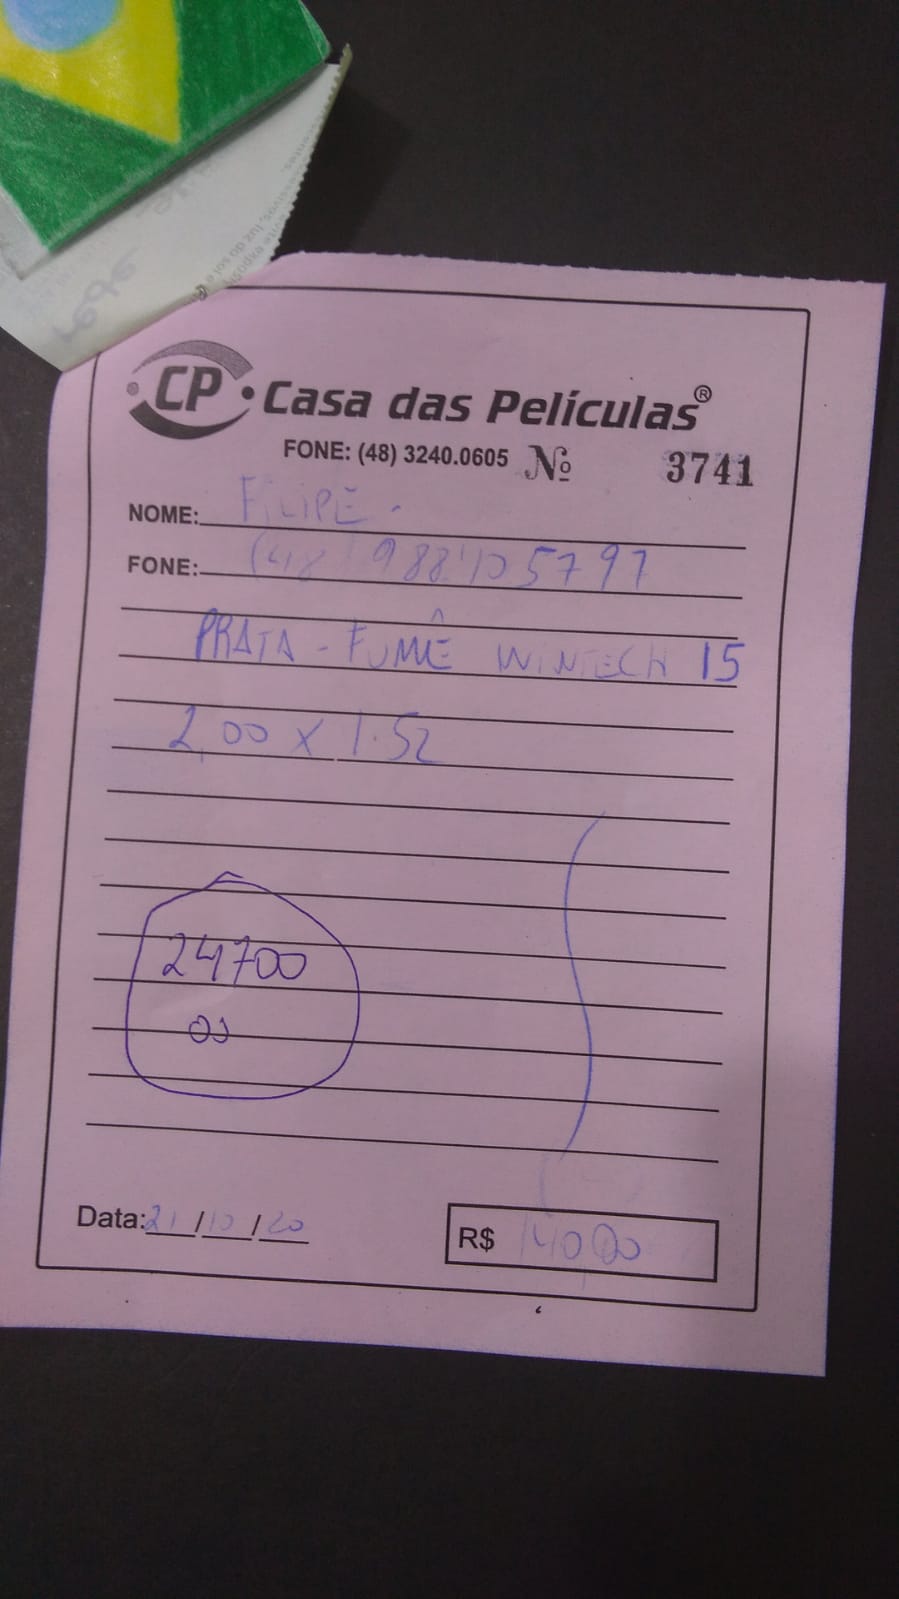 rede
CP Casa das Películas®
FONE: (48) 3240.0605 Nº 3741
NOME: FILIPE.
FONE: (48) 988105797
PRATA - FUMÊ WINTECH 15
2,00 x 1.52
24700
00
Data: 21/10/20 R$ 14000